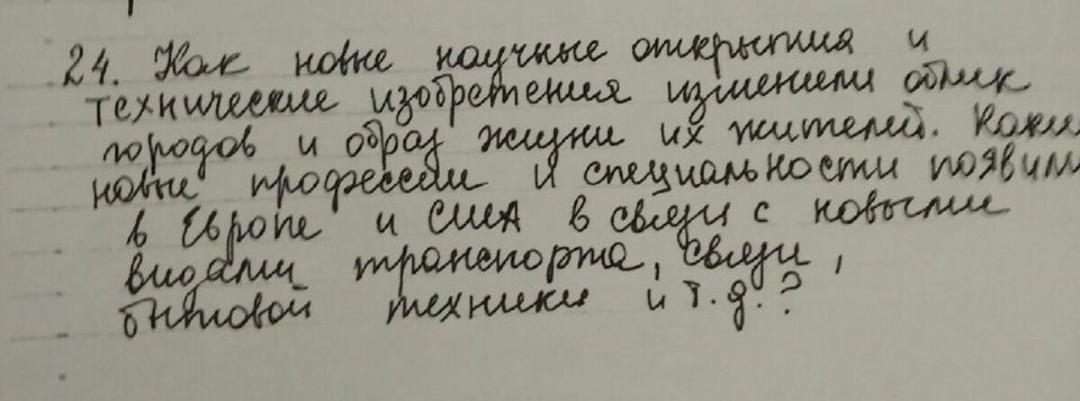 24. Как новые научные открытия и
технические изобретения изменили облик
городов и образ жизни их жителей. Какие
новые профессии и специальности появили
в Европе и США в связи с новыми
видами транспорта, связи,
бытовой техники и т.д.?